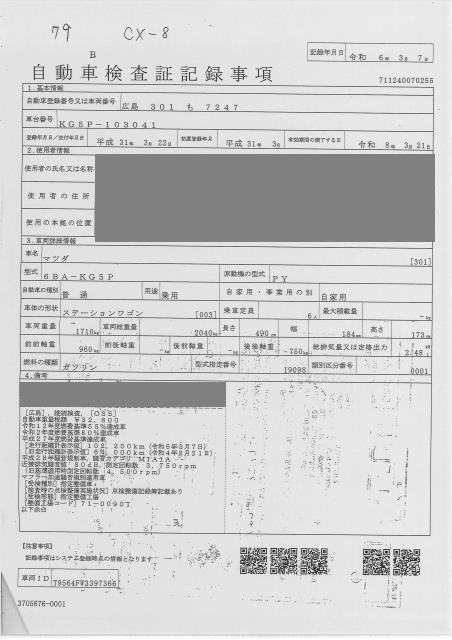 79 CX-8
B
記録年月日 令和 6年 3月 7日
自動車検査証記録事項
711240070255
1.基本情報
自動車登録番号又は車両番号 広島 301 も 7247
車台番号 KG5P-103041
登録年月日/交付年月日 平成 31年 3月 22日 初度登録年月 平成 31年 3月 有効期間の満了する日 令和 8年 3月 21日
2.使用者情報
使用者の氏名又は名称
使用者の住所
使用の本拠の位置
3.車両詳細情報
車名 マツダ [301]
型式 6BA-KG5P 原動機の型式 PY
自動車の種別 普通 用途 乗用 自家用・事業用の別 自家用
車体の形状 ステーションワゴン [003] 乗車定員 6人 最大積載量 -kg
車両重量 1710kg 車両総重量 2040kg 長さ 490cm 幅 184cm 高さ 173cm
前前軸重 960kg 前後軸重 -kg 後前軸重 -kg 後後軸重 750kg 総排気量又は定格出力 2.48L
燃料の種類 ガソリン 型式指定番号 19098 類別区分番号 0001
4.備考
[広島],継続検査,[OSS]
自動車重量税額 ¥32,800
令和12年度燃費基準55%達成車
令和2年度燃費基準80%達成車
平成27年度燃費基準達成車
[走行距離計表示値] 102,200km (令和6年3月7日)
平成28年騒音規制車,騒音カテゴリ M1A1A
近接排気騒音値 80dB,測定回転数 3,750rpm
(旧基準適用時測定回転数 4,500rpm)
マフラー加速騒音規制適用車
[受検種別] 指定整備車
[受検時の点検整備実施状況] 点検整備記録簿記載あり
[受検形態] 指定整備工場
[整備工場コード] 71-0090T
以下余白
【注意事項】
記録事項はシステム登録時点の情報となります
車両ID T9564FW3397366
3705676-0001